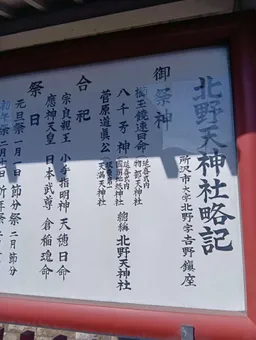 北野天神社略記
所沢市大字北野字吉野鎮座
御祭神
櫛玉饒速日命
延喜式内
物部天神社
八千矛神
延喜式内
國渭地祇神社
總稱 北野天神社
菅原道眞公
天満天神社
合祀
宗良親王 小手指明神 天穂日命
應神天皇 日本武尊 倉稲魂命
祭日
元旦祭 一月一日 節分祭 二月節分